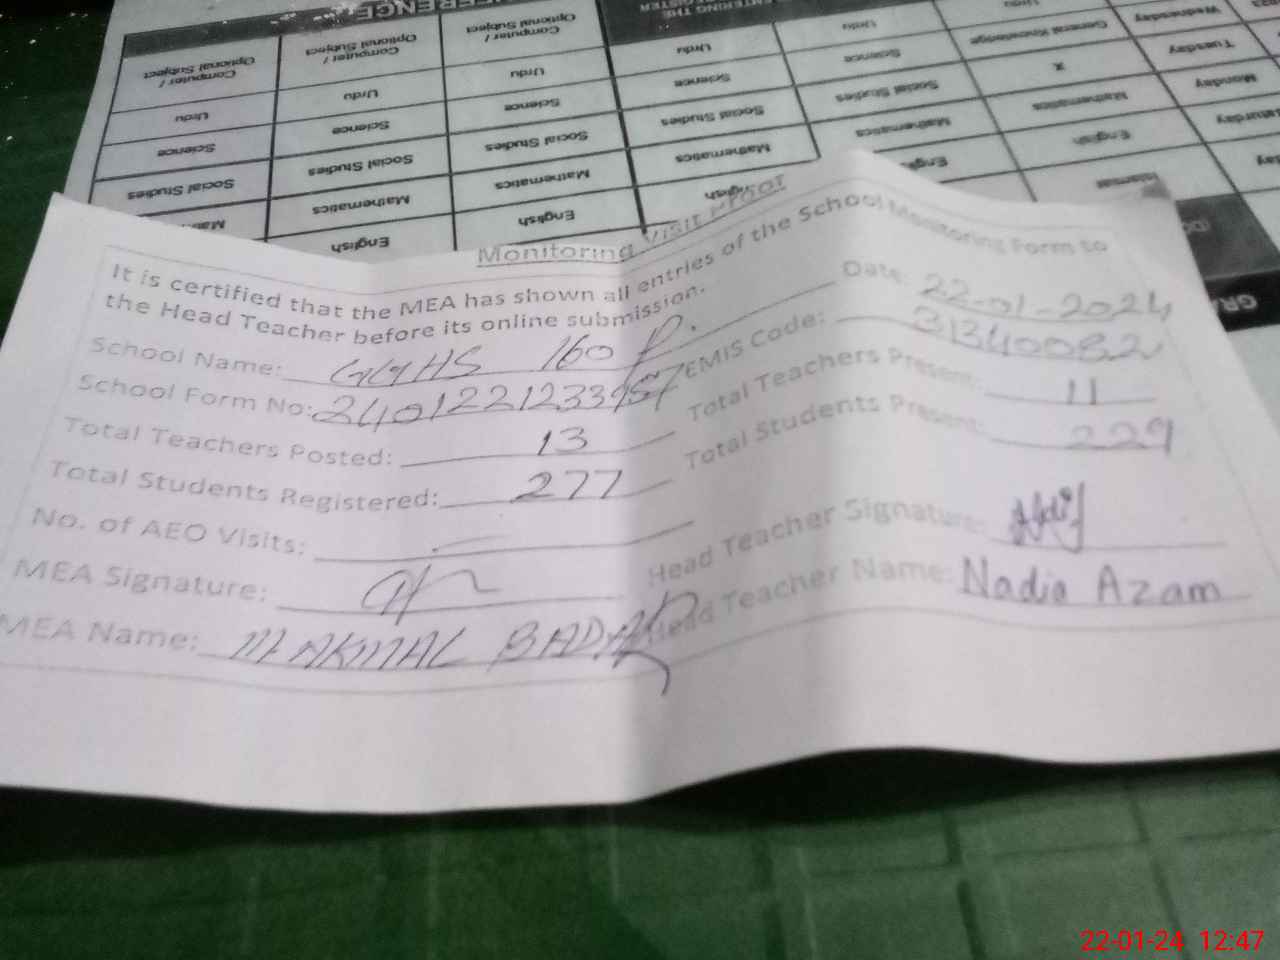 Monitoring Visit Proof
It is certified that the MEA has shown all entries of the School Monitoring Form to
the Head Teacher before its online submission.
Date: 22-01-2024
School Name: GGHS 160 P.
EMIS Code: 31340082
School Form No:
Total Teachers Present: 11
Total Teachers Posted: 13
Total Students Present: 229
Total Students Registered: 277
No. of AEO Visits: -
Head Teacher Signature:
MEA Signature:
Head Teacher Name: Nadia Azam
MEA Name: M AKMAL
Computer / Optional Subject
Computer / Optional Subject
Computer / Optional Subject
Urdu
Urdu
Urdu
Urdu
Urdu
Urdu
Science
Science
Science
Science
Science
General Knowledge
Wednesday
Social Studies
Social Studies
Social Studies
Social Studies
Social Studies
X
Tuesday
Mathematics
Mathematics
Mathematics
Mathematics
Mathematics
Monday
English
English
English
English
22-01-24 12:47